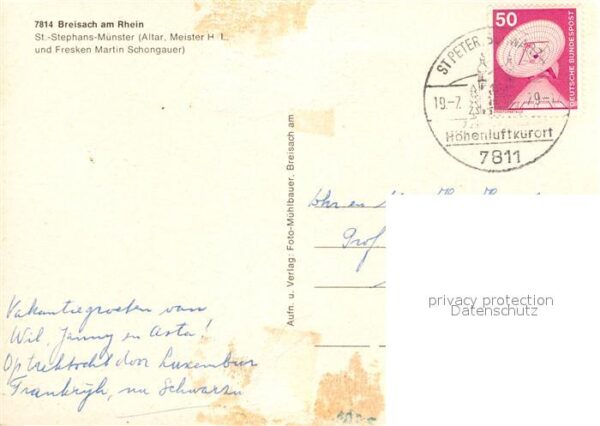 7814 Breisach am Rhein
St.-Stephans-Münster (Altar, Meister H. L.
und Fresken Martin Schongauer)
50
DEUTSCHE BUNDESPOST
ST PETER, SCHWARZW
19.-7.
-9.-7
Höhenluftkurort
7811
Aufn. u. Verlag: Foto-Mühlbauer, Breisach am
Prof
privacy protection
Datenschutz
Vakantiegroeten van
Wil, Janny en Asta!
Op trektocht door Luxemburg
Frankrijk, nu Schwarzw